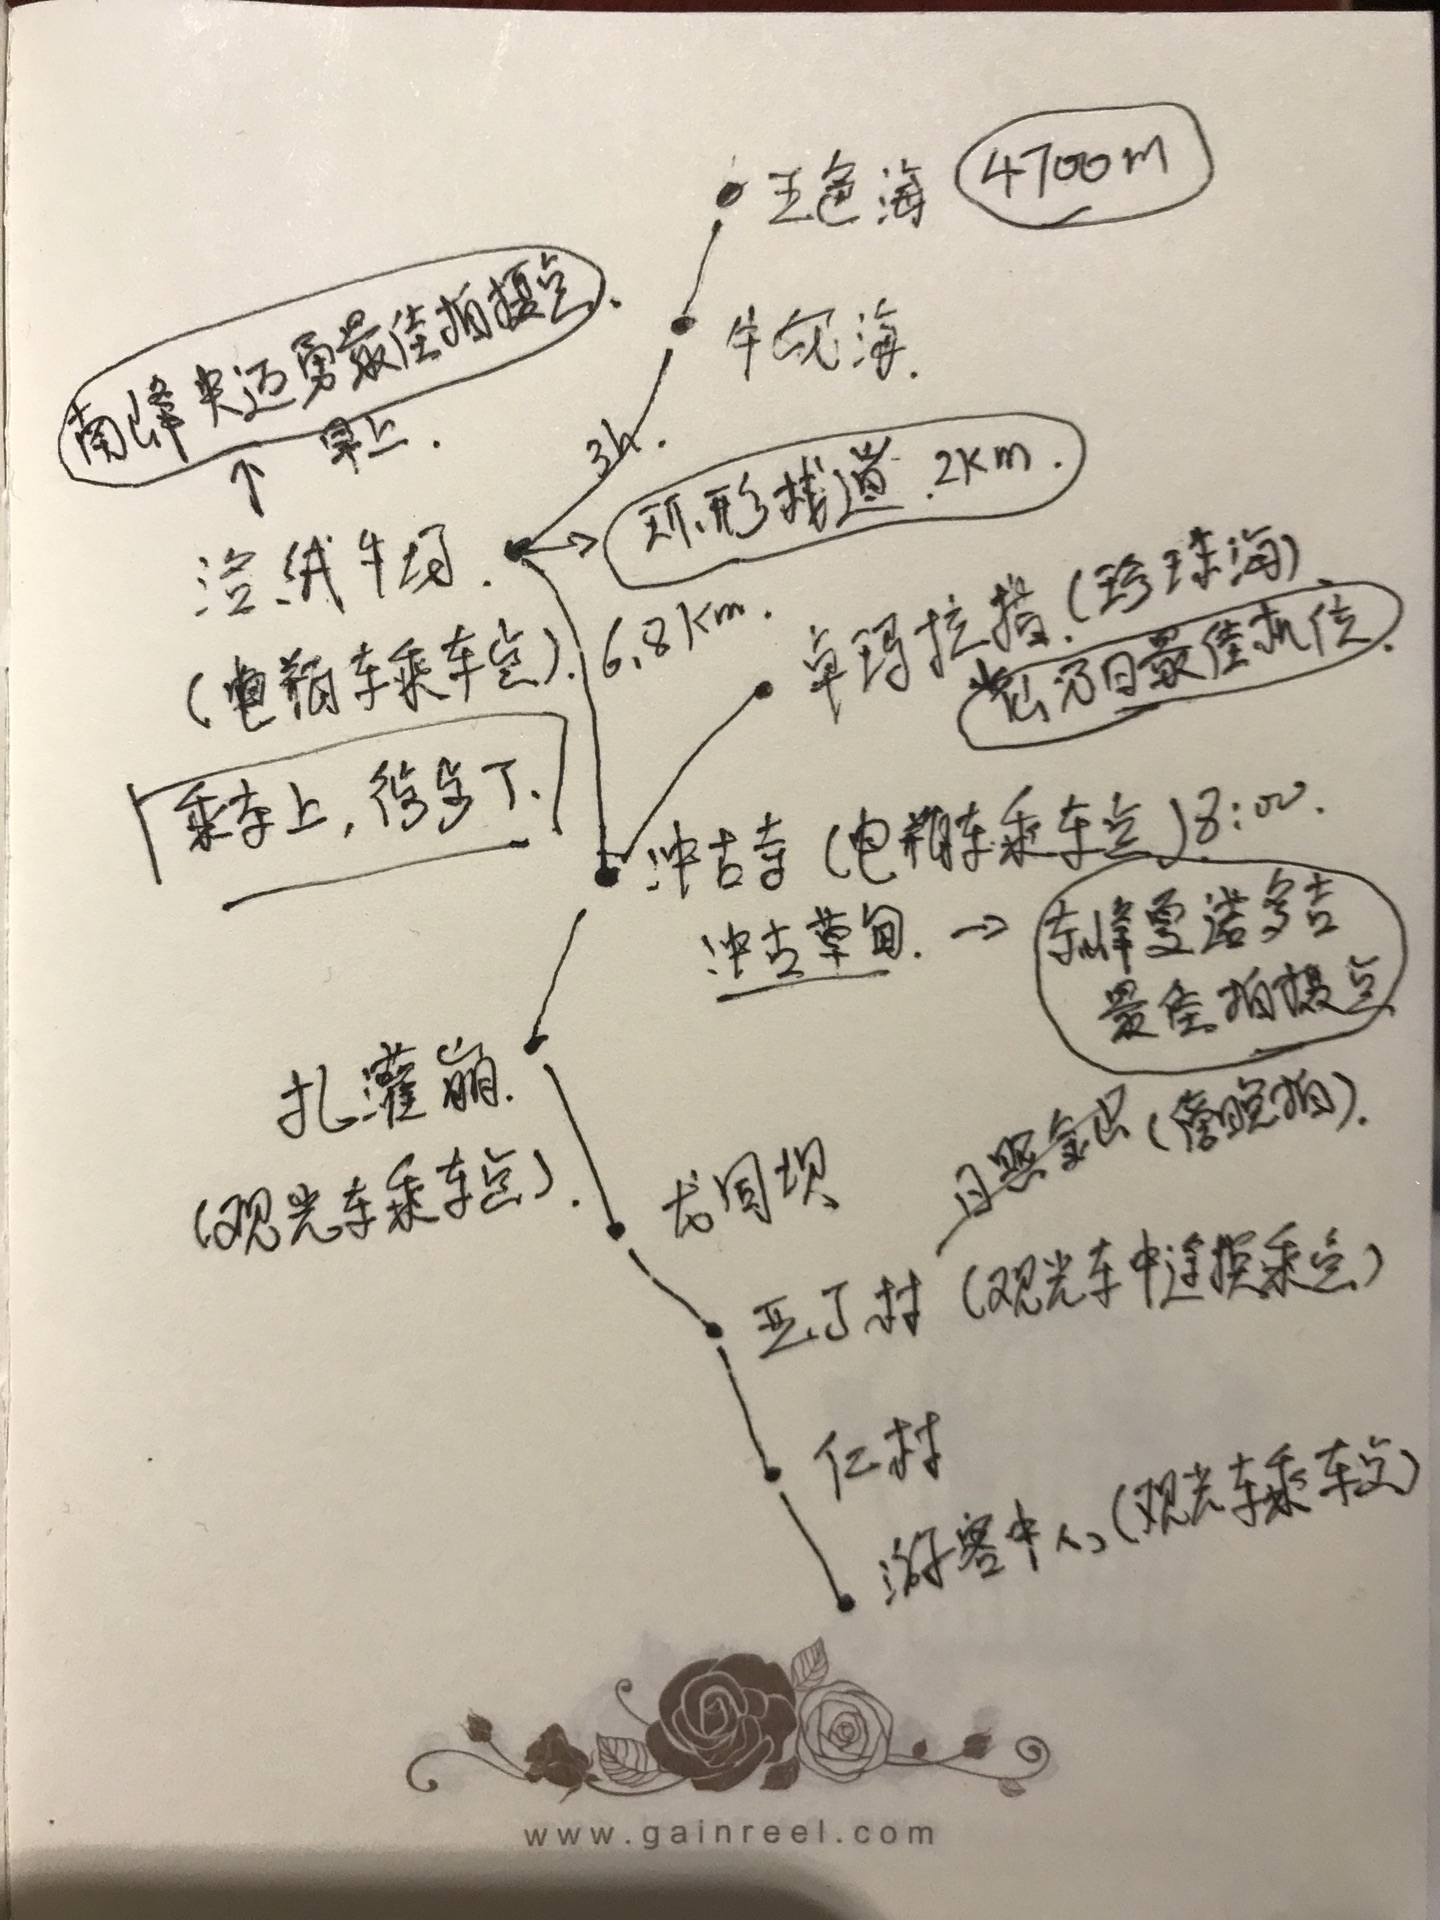 五色海 4700m
牛奶海.
南峰央迈勇最佳拍摄点.
早上.
3h.
环形栈道.2km.
洛绒牛场.
(电瓶车乘车点).
6.8km.
卓玛拉措.(珍珠海)
仙乃日最佳机位.
乘车上,徒步下.
冲古寺(电瓶车乘车点)8:00.
冲古草甸. → 东峰夏诺多吉
最佳拍摄点
扎灌崩.
(观光车乘车点).
龙同坝
日照金山(傍晚拍).
亚丁村(观光车中途换乘点)
仁村
游客中心(观光车乘车点)
www.gainreel.com